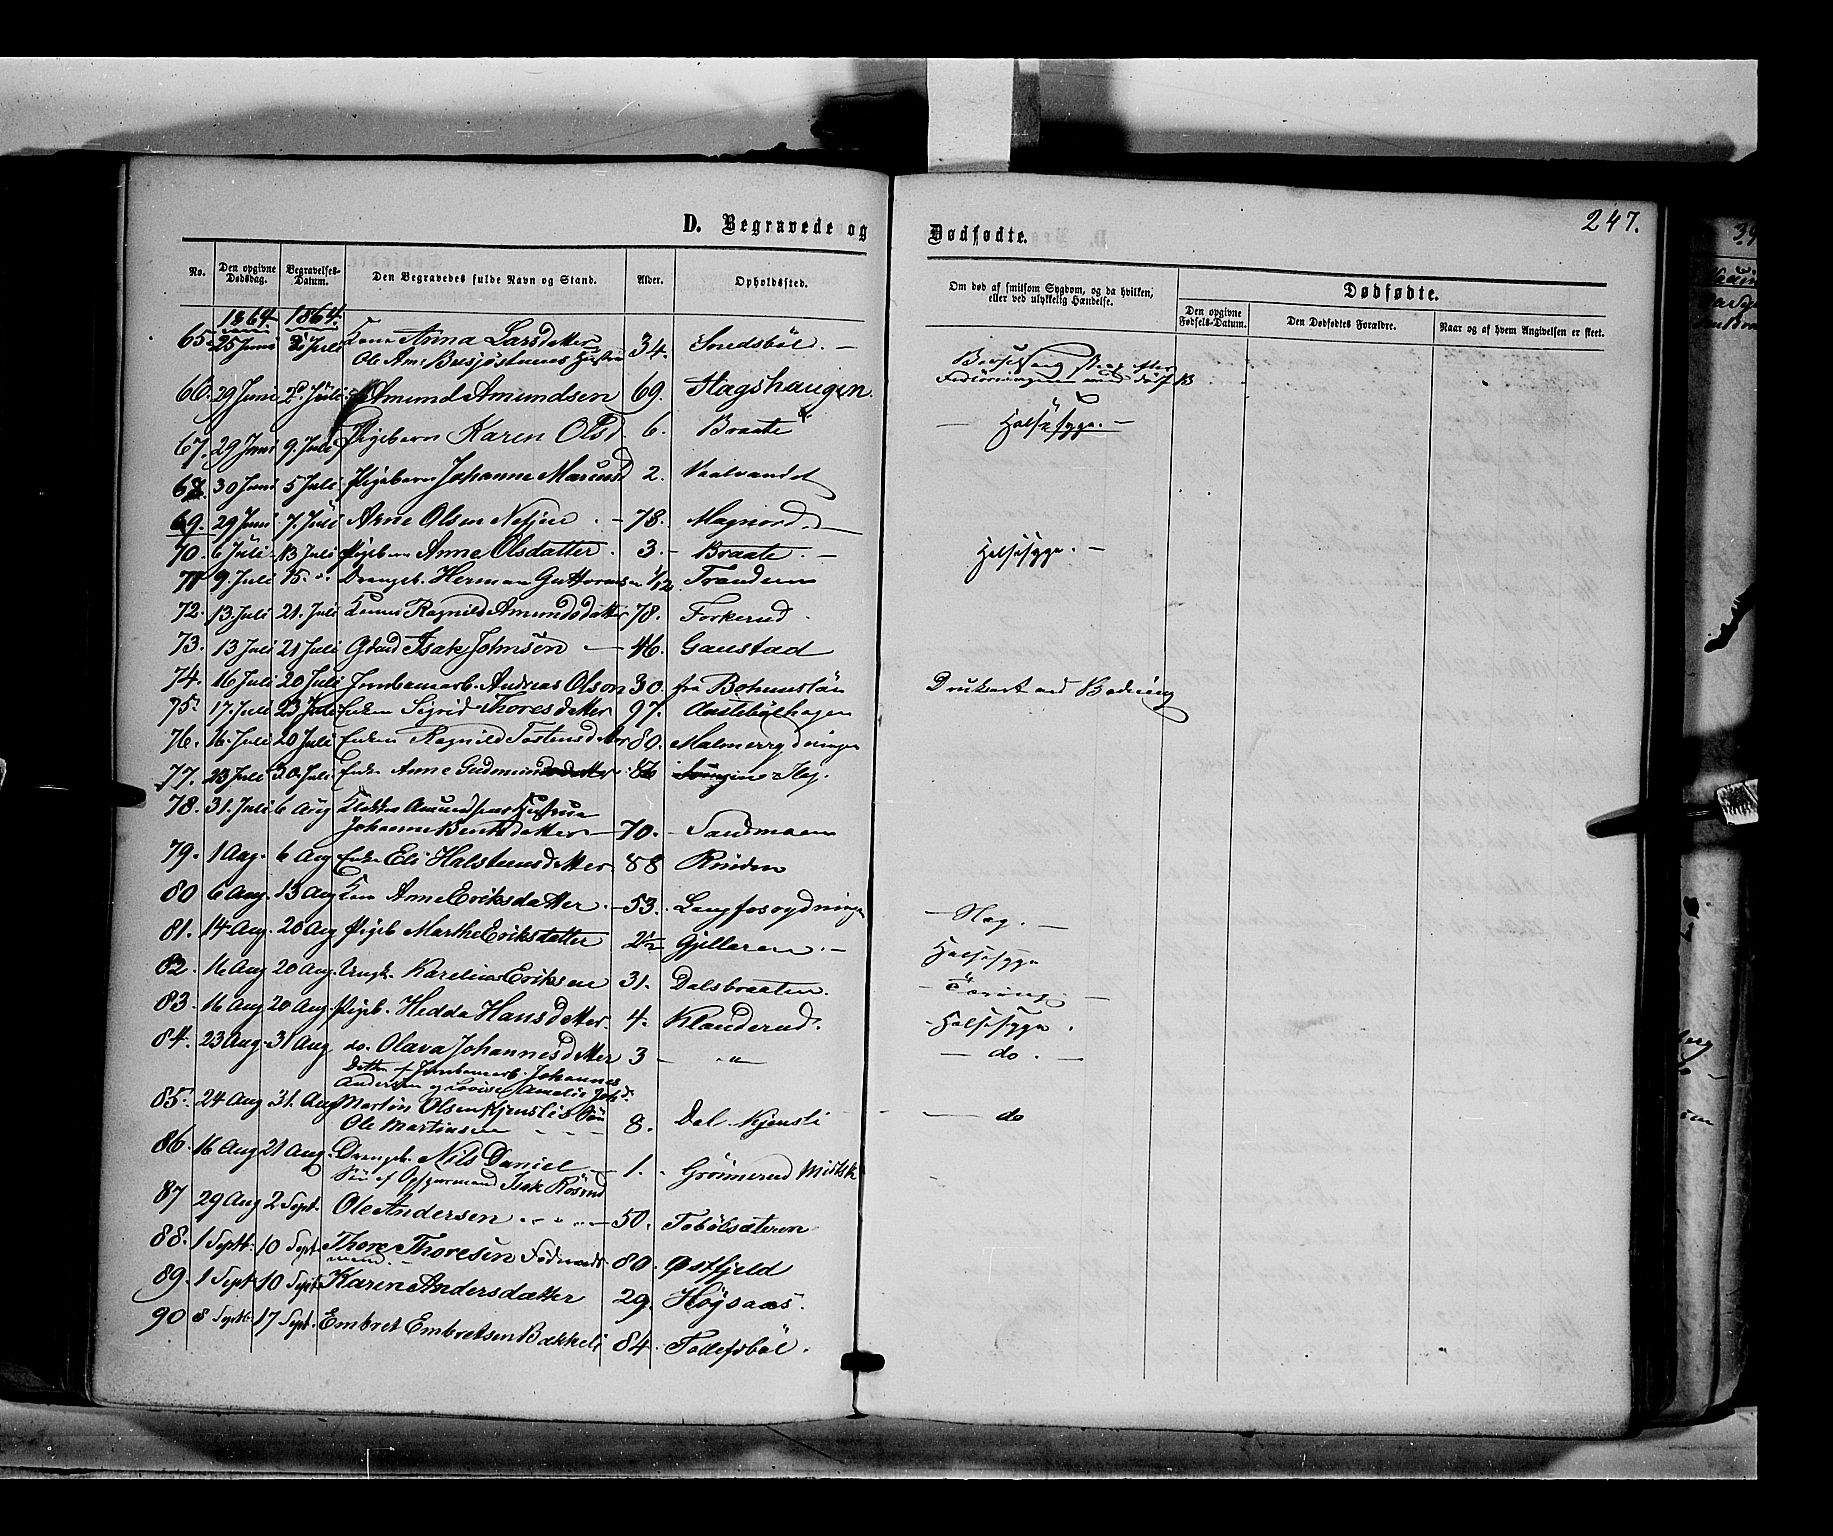 D. Begravede og Dødfødte.
247.
No. Den opgivne Dødsdag. Begravelses-Datum. Den Begravedes fulde Navn og Stand. Alder. Opholdssted. Om død af smitsom Sygdom, og da hvilken, eller ved ulykkelig Hændelse. Dødfødte.
Den opgivne Fødsels-Datum. Den Dødfødtes Forældre. Naar og af hvem Angivelsen er skeet.
1864 1864.
65. 25 Juni 2 Juli Kone Anna Larsdatter 34.
Ole Am: Hustru
66. 29 Juni 2d Juli Amund Amundsen 69. Hagshaugen
67. 29 Juni 9 Juli Pigebarn Karen Olsd. 6. Braate - Halsesyge. -
68. 30 Juni 5 Juli Pigebarn Johanne Mariusd 2. Vaalvandet
69. 29 Juni 7. Juli Arne Olsen - 78. Magnord -
70. 6 Juli 13 Juli Pigebarn Anne Olsdatter. 3. - Braate. - Halsesyge. -
71 9. Juli 15. Drengeb. Herman Guttormsen 1/12. Trandem
72. 13. Juli 21. Juli Kone Ragnild Amundsdatter 78. Forkerud.
73. 13 Juli 21 Juli Gbrd Isak Johnsen - 46. Gaustad
74. 16 Juli 20 Juli Jernbanearb. Andreas Olson 30. fra Bohuslän Druknet ved Badning
75. 17. Juli 23 Juli Enken Sigrid Thoresdatter 97.
76. 16. Juli 20 Juli Enken Ragnild Tostensdatter 80. Malmerrydningen
77. 23 Juli 30. Juli Enke Anne Gudmundsdatter 86 Hag.
78. 31. Juli 6 Aug Klokker Amundsens Hustrue
Johanne Berntsdatter - 70. - Sandmoen
79. 1 Aug. 6 Aug Enke Eli Halstensdatter 88
80 6 Aug. 13 Aug Kone Anne Eriksdatter. - 53. Langfosrydningen - Slag. -
81. 14 Aug. 20 Aug Pigeb Marthe Eriksdatter 2 1/2 Gjillaren. - Halsesyge
82. 16 Aug 20 Aug. Ungk. Karelius Eriksen 31. Dalsbraaten. - Tæring. -
83. 16 Aug 20 Aug. Pigeb. Hedda Hansdatter. 4. Klanderud. - Halsesyge.
84. 23 Aug. 31 Aug do. Olava Johannesdatter 3 - " - - do. -
Datter af Jernbanearb. Johannes
Andersen og Lovise Amalie Joh.d.
85. 24 Aug 31. Aug Martin Olsen Kjenslis Søn
Ole Martinsen - - - 8. Dal. Kjensli - do
86. 16 Aug 21 Aug. Drengeb. Nils Daniel - 1. Grönnerud
Søn af Opsynsmand Isak
87 29 Aug 2 Sept. Ole Andersen - 50. Tobölsæteren
88. 1 Septt. 10 Sept. Thore Thoresen Föderaads
mand. - 80. Østfjeld
89. 1 Sept 10 Sept. Karen Andersdatter 29. Högsaas.
90 8 Septb. 17 Sept. Embret Embretsen Bækkeli 84.